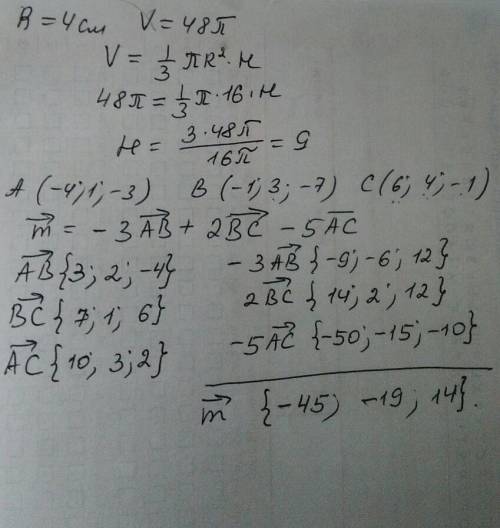 R = 4 см V = 48π
V = 1/3 πR²·H
48π = 1/3 π·16·H
H = 3·48π/16π = 9
A (-4; 1; -3) B (-1; 3; -7) C (6; 4; -1)
m⃗ = -3A⃗B⃗ + 2B⃗C⃗ - 5A⃗C⃗
A⃗B⃗ {3; 2; -4} -3A⃗B⃗ {-9; -6; 12}
B⃗C⃗ {7; 1; 6} 2B⃗C⃗ {14; 2; 12}
A⃗C⃗ {10; 3; 2} -5A⃗C⃗ {-50; -15; -10}
m⃗ {-45; -19; 14}.